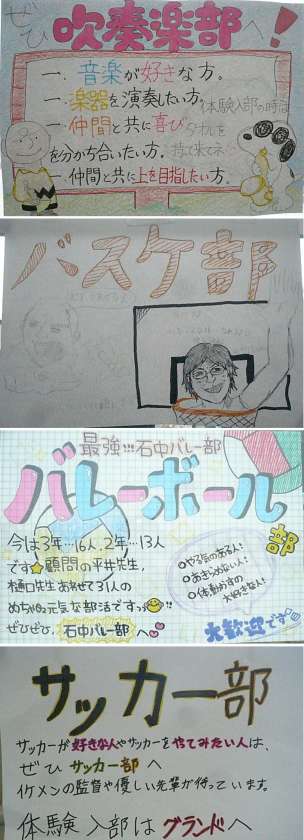 ぜひ吹奏楽部へ!
一.音楽が好きな方。
一.楽器を演奏したい方。
一.仲間と共に喜び
を分かち合いたい方。
一.仲間と共に上を目指したい方。
体験入部の時は
バスケ部
最強!!!石中バレー部
バレーボール
部
今は3年…16人,2年…13人
です☆顧問の平井先生,
樋口先生あわせて31人の
めちゃめちゃ元気な部活ですッ!!
ぜひぜひ、石中バレー部へ
○やる気のある人!
○あきらめない人!
○体動かすの
大好きな人!
大歓迎です
サッカー部
サッカーが好きな人やサッカーをやってみたい人は、
ぜひサッカー部へ
イケメンの監督や優しい先輩が待っています。
体験入部はグランドへ